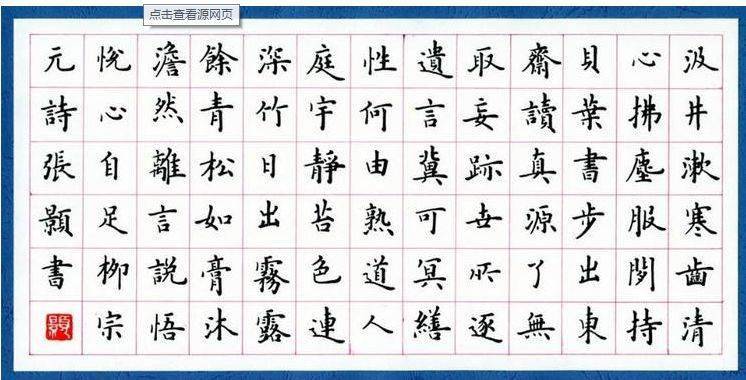 点击查看源网页
汲井漱寒齒清
心拂塵服閒持
貝葉書步出東
齋讀真源了無
取妄跡世所逐
遺言冀可冥繕
性何由熟道人
庭宇靜苔色連
深竹日出霧露
餘青松如膏沐
澹然離言說悟
悅心自足柳宗
元詩張顥書